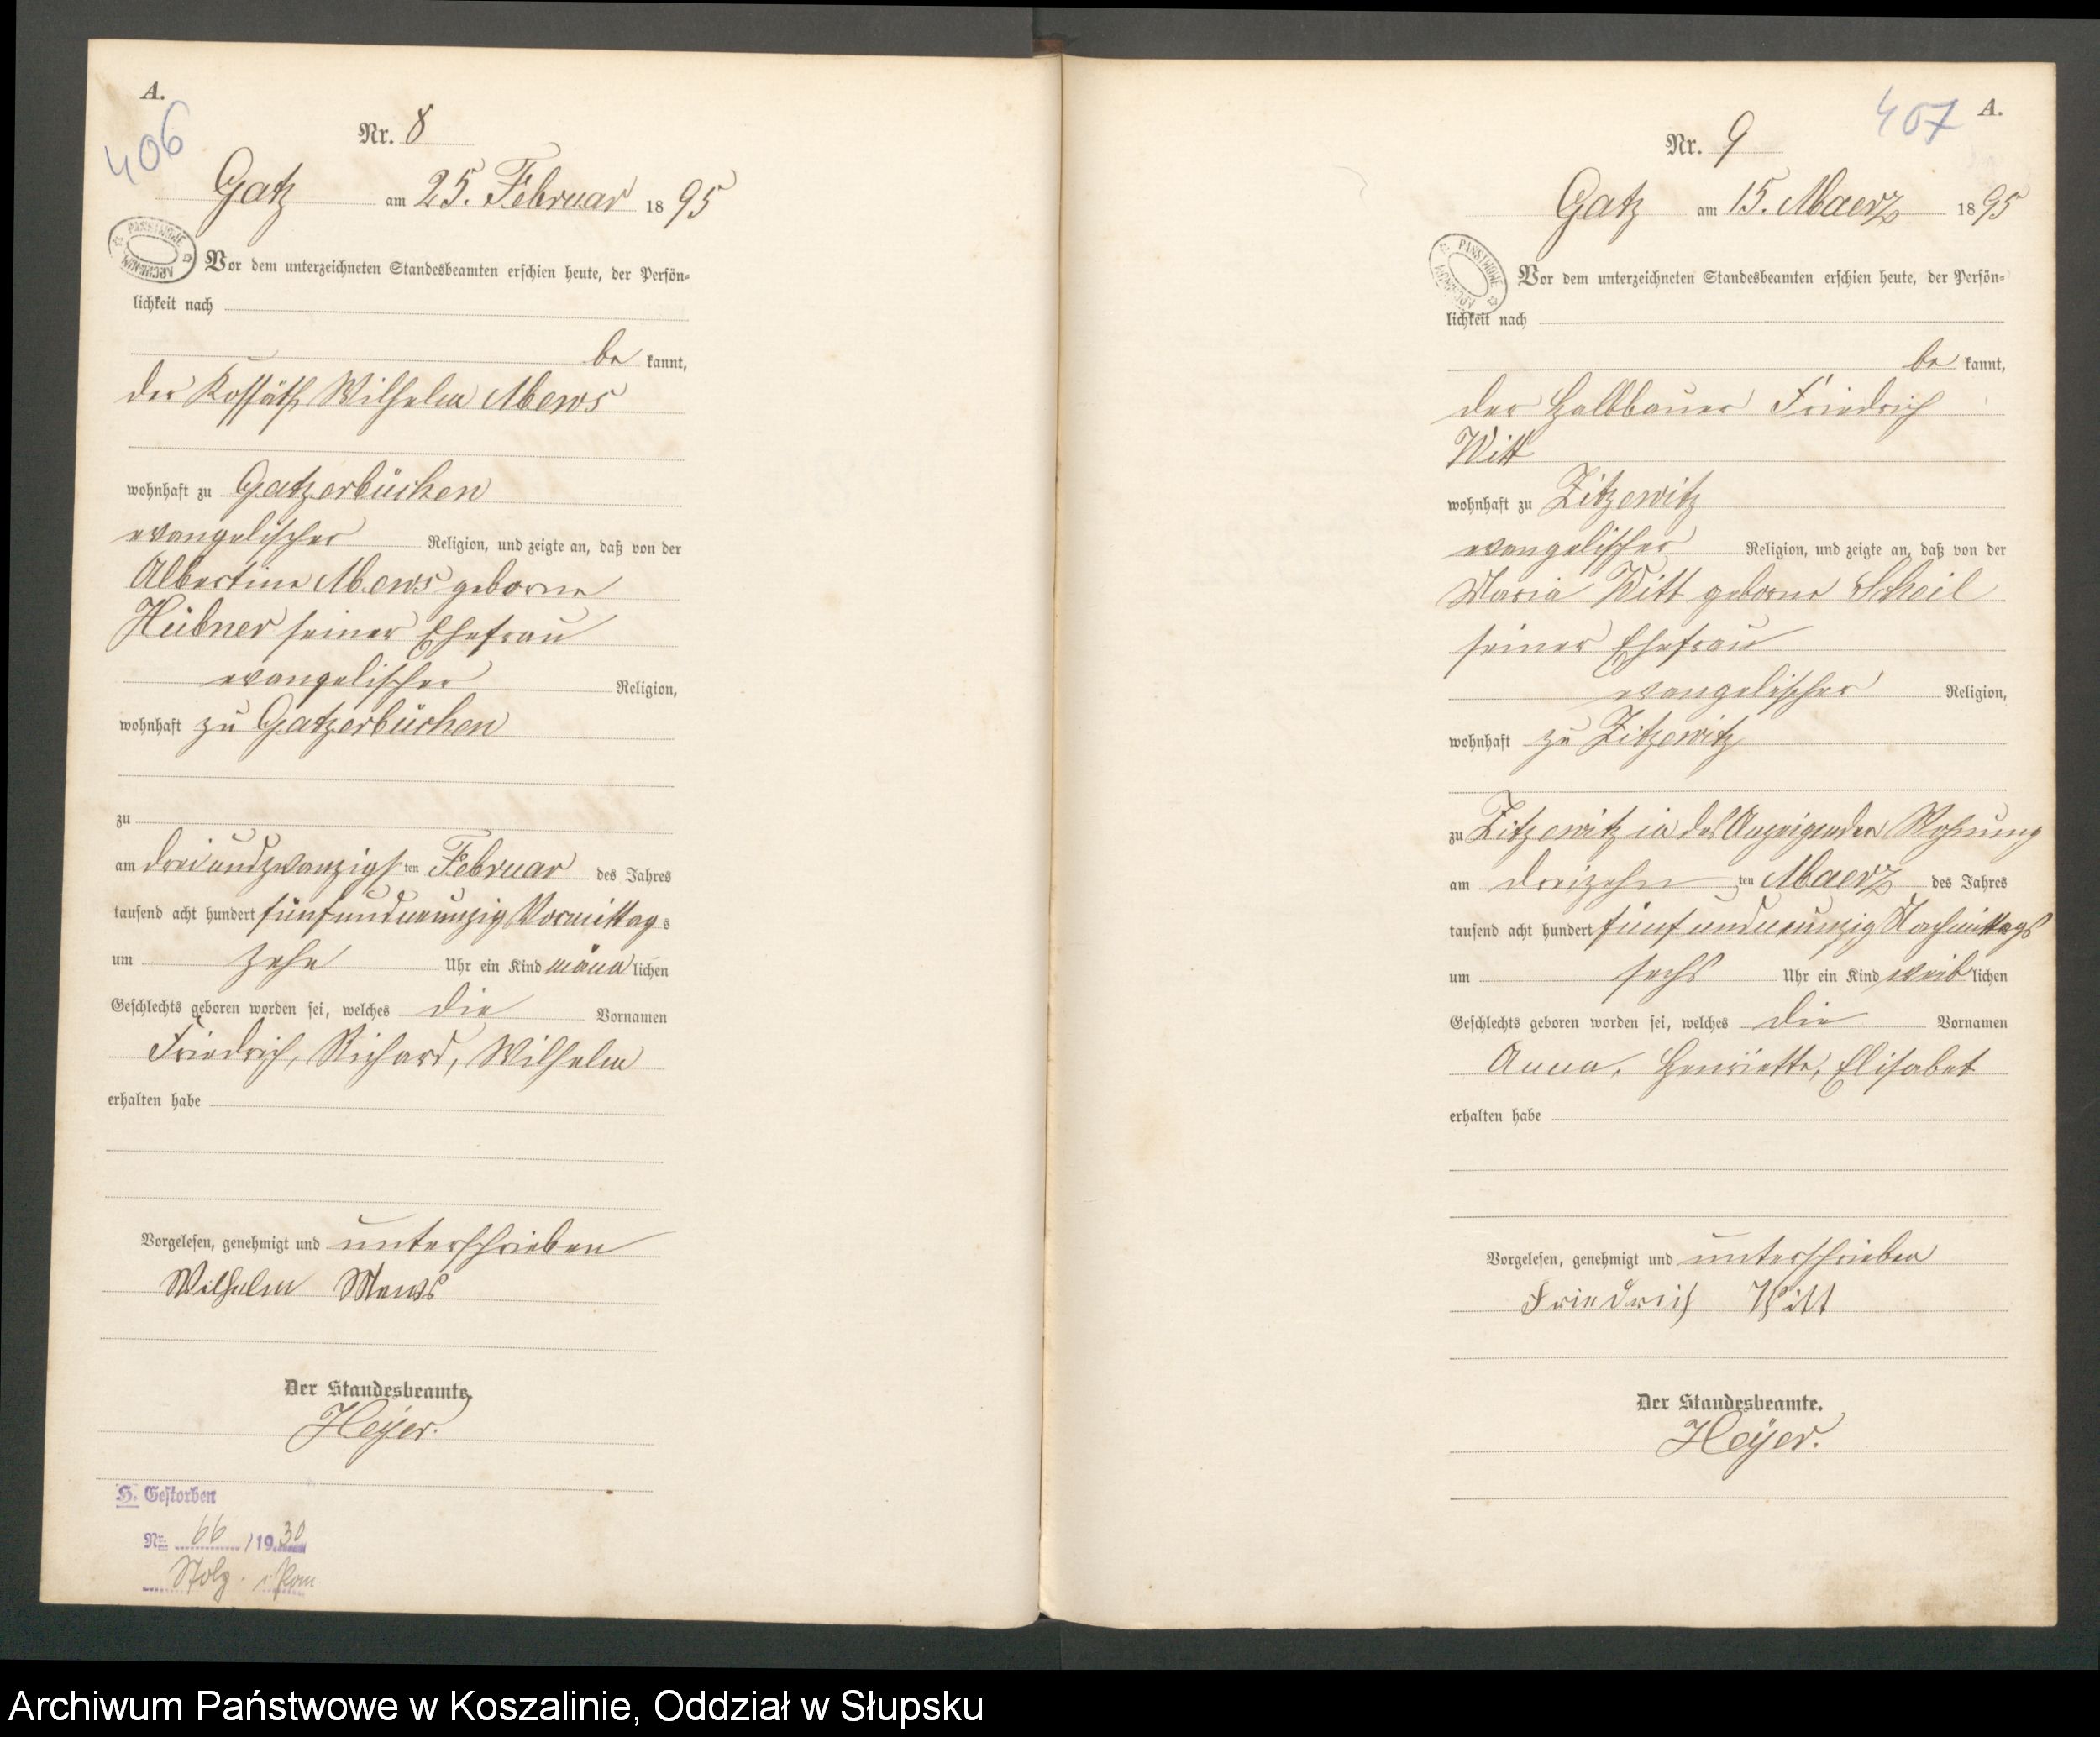 A.
406
Nr. 8
Gatz am 25. Februar 1895
PAŃSTWOWE ARCHIWUM
Vor dem unterzeichneten Standesbeamten erschien heute, der Persön-
lichkeit nach
be kannt,
der Kossäth Wilhelm Mews
wohnhaft zu Gatzerbücken
evangelischer Religion, und zeigte an, daß von der
Albertine Mews geborne
Hübner seiner Ehefrau
evangelischer Religion,
wohnhaft zu Gatzerbücken
zu
am dreiundzwanzigsten Februar des Jahres
tausend acht hundert fünfundneunzig Vormittags
um zehn Uhr ein Kind männlichen
Geschlechts geboren worden sei, welches die Vornamen
Friedrich, Richard, Wilhelm
erhalten habe
Vorgelesen, genehmigt und unterschrieben
Wilhelm Mews
Der Standesbeamte.
Heyer.
H. Gestorben
Nr. 66 / 1930
Stolp i. Pom
407 A.
Nr. 9
Gatz am 15. Maerz 1895
PAŃSTWOWE ARCHIWUM
Vor dem unterzeichneten Standesbeamten erschien heute, der Persön-
lichkeit nach
be kannt,
der Halbbauer Friedrich
Witt
wohnhaft zu Zitzewitz
evangelischer Religion, und zeigte an, daß von der
Maria Witt geborne Scheil
seiner Ehefrau
evangelischer Religion,
wohnhaft zu Zitzewitz
zu Zitzewitz in des Anzeigenden Wohnung
am dreizehn ten Maerz des Jahres
tausend acht hundert fünfundneunzig Nachmittags
um sechs Uhr ein Kind weiblichen
Geschlechts geboren worden sei, welches die Vornamen
Anna, Henriette, Elisabet
erhalten habe
Vorgelesen, genehmigt und unterschrieben
Friedrich Witt
Der Standesbeamte.
Heyer.
Archiwum Państwowe w Koszalinie, Oddział w Słupsku